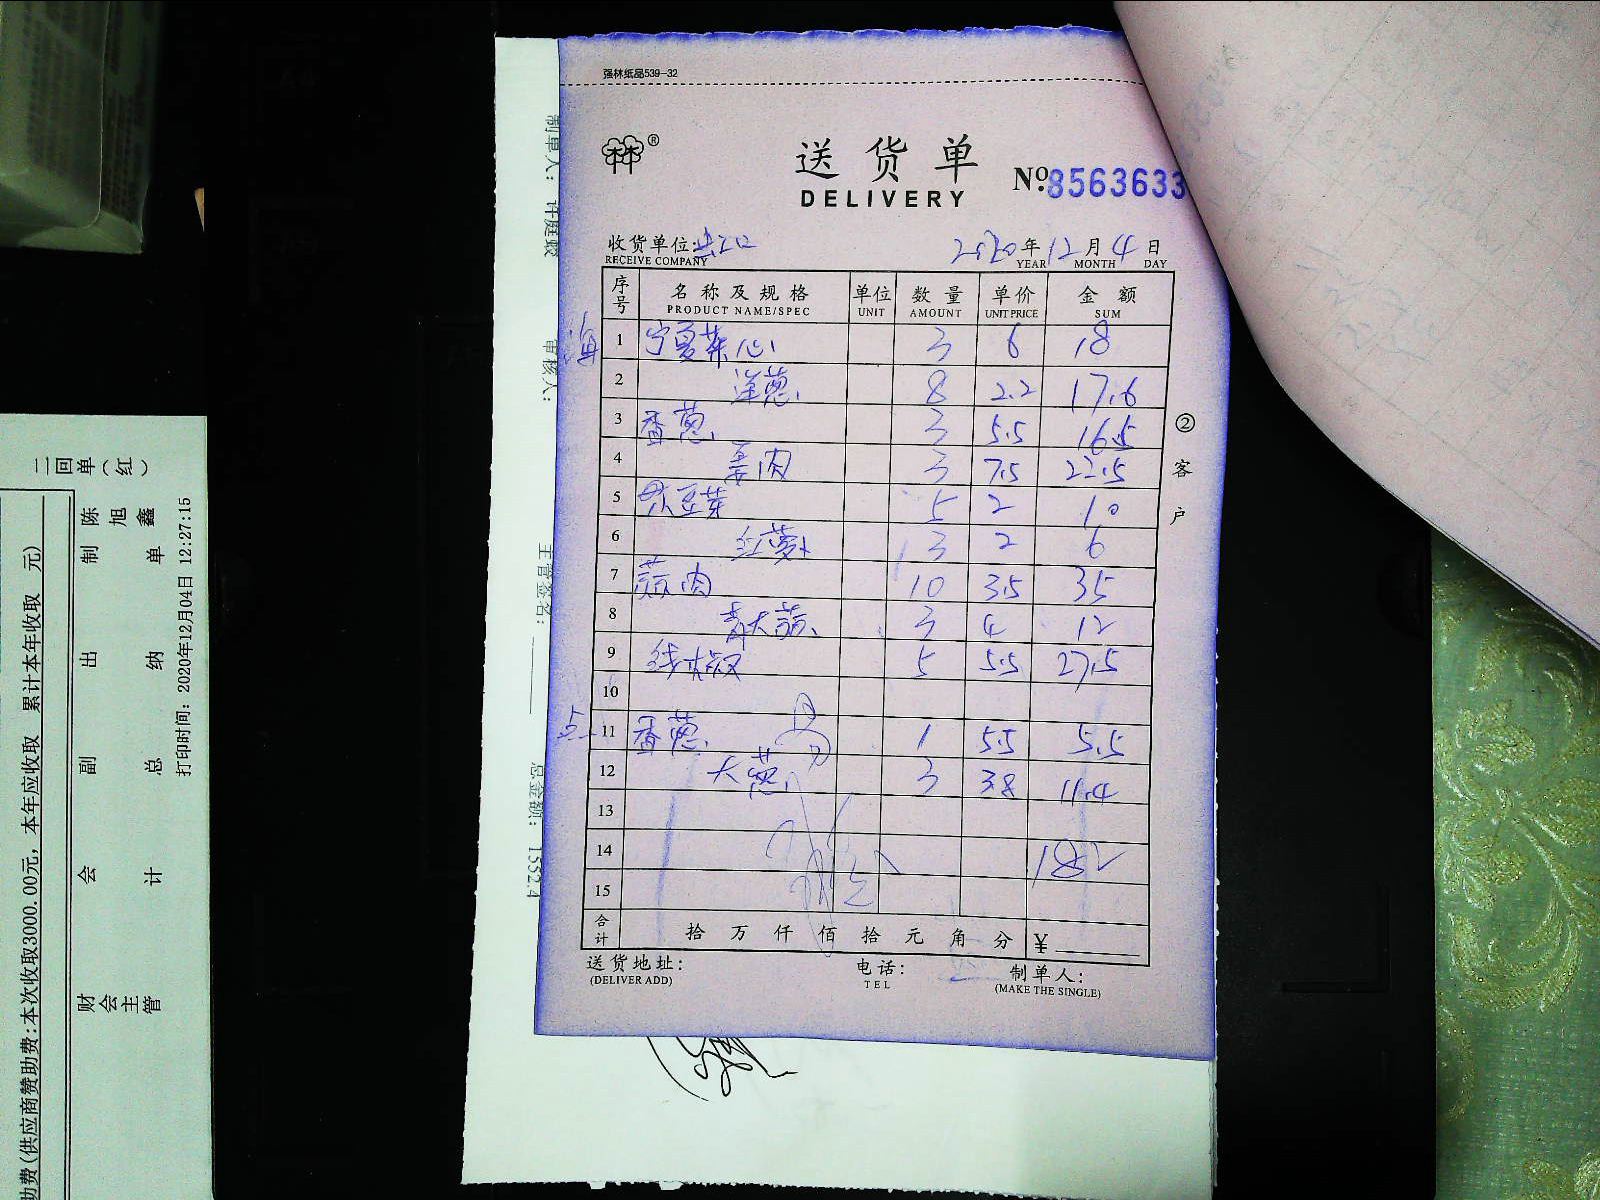 强林纸品539-32
林®
送货单
DELIVERY
No.8563633
收货单位:
RECEIVE COMPANY
2020年12月4日
YEAR MONTH DAY
序号 名称及规格 单位 数量 单价 金额
PRODUCT NAME/SPEC UNIT AMOUNT UNIT PRICE SUM
海 1 宁夏菜心 3 6 18
2 洋葱 8 2.2 17.6
3 香葱 3 5.5 16.5
4 姜肉 3 7.5 22.5
5 大豆芽 5 2 10
6 红萝卜 3 2 6
7 蒜肉 10 3.5 35
8 青大蒜 3 4 12
9 线椒 5 5.5 27.5
10
11 香葱 1 5.5 5.5
12 大葱 3 3.8 11.4
13
14 182
15
合计 拾万仟佰拾元角分 ¥
送货地址: 电话: 制单人:
(DELIVER ADD) TEL (MAKE THE SINGLE)
②客户
制单人: 许庭蛟
审核人:
主管签名:
总金额: 1552.4
二回单(红)
助费(供应商赞助费:本次收取3000.00元, 本年应收取 累计本年收取 元)
财会主管 会计 副总 出纳 制单 陈旭鑫
打印时间: 2020年12月04日 12:27:15